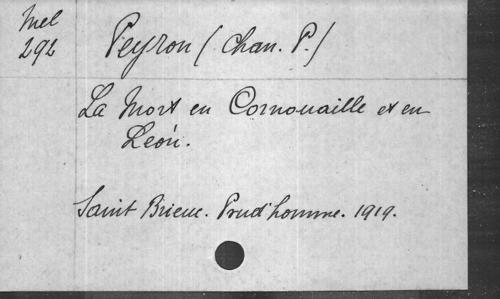 Mel
292
Peyron (Chan. P.)
La Mort en Cornouaille et en
Léon.
Saint Brieuc. Prud'homme. 1919.